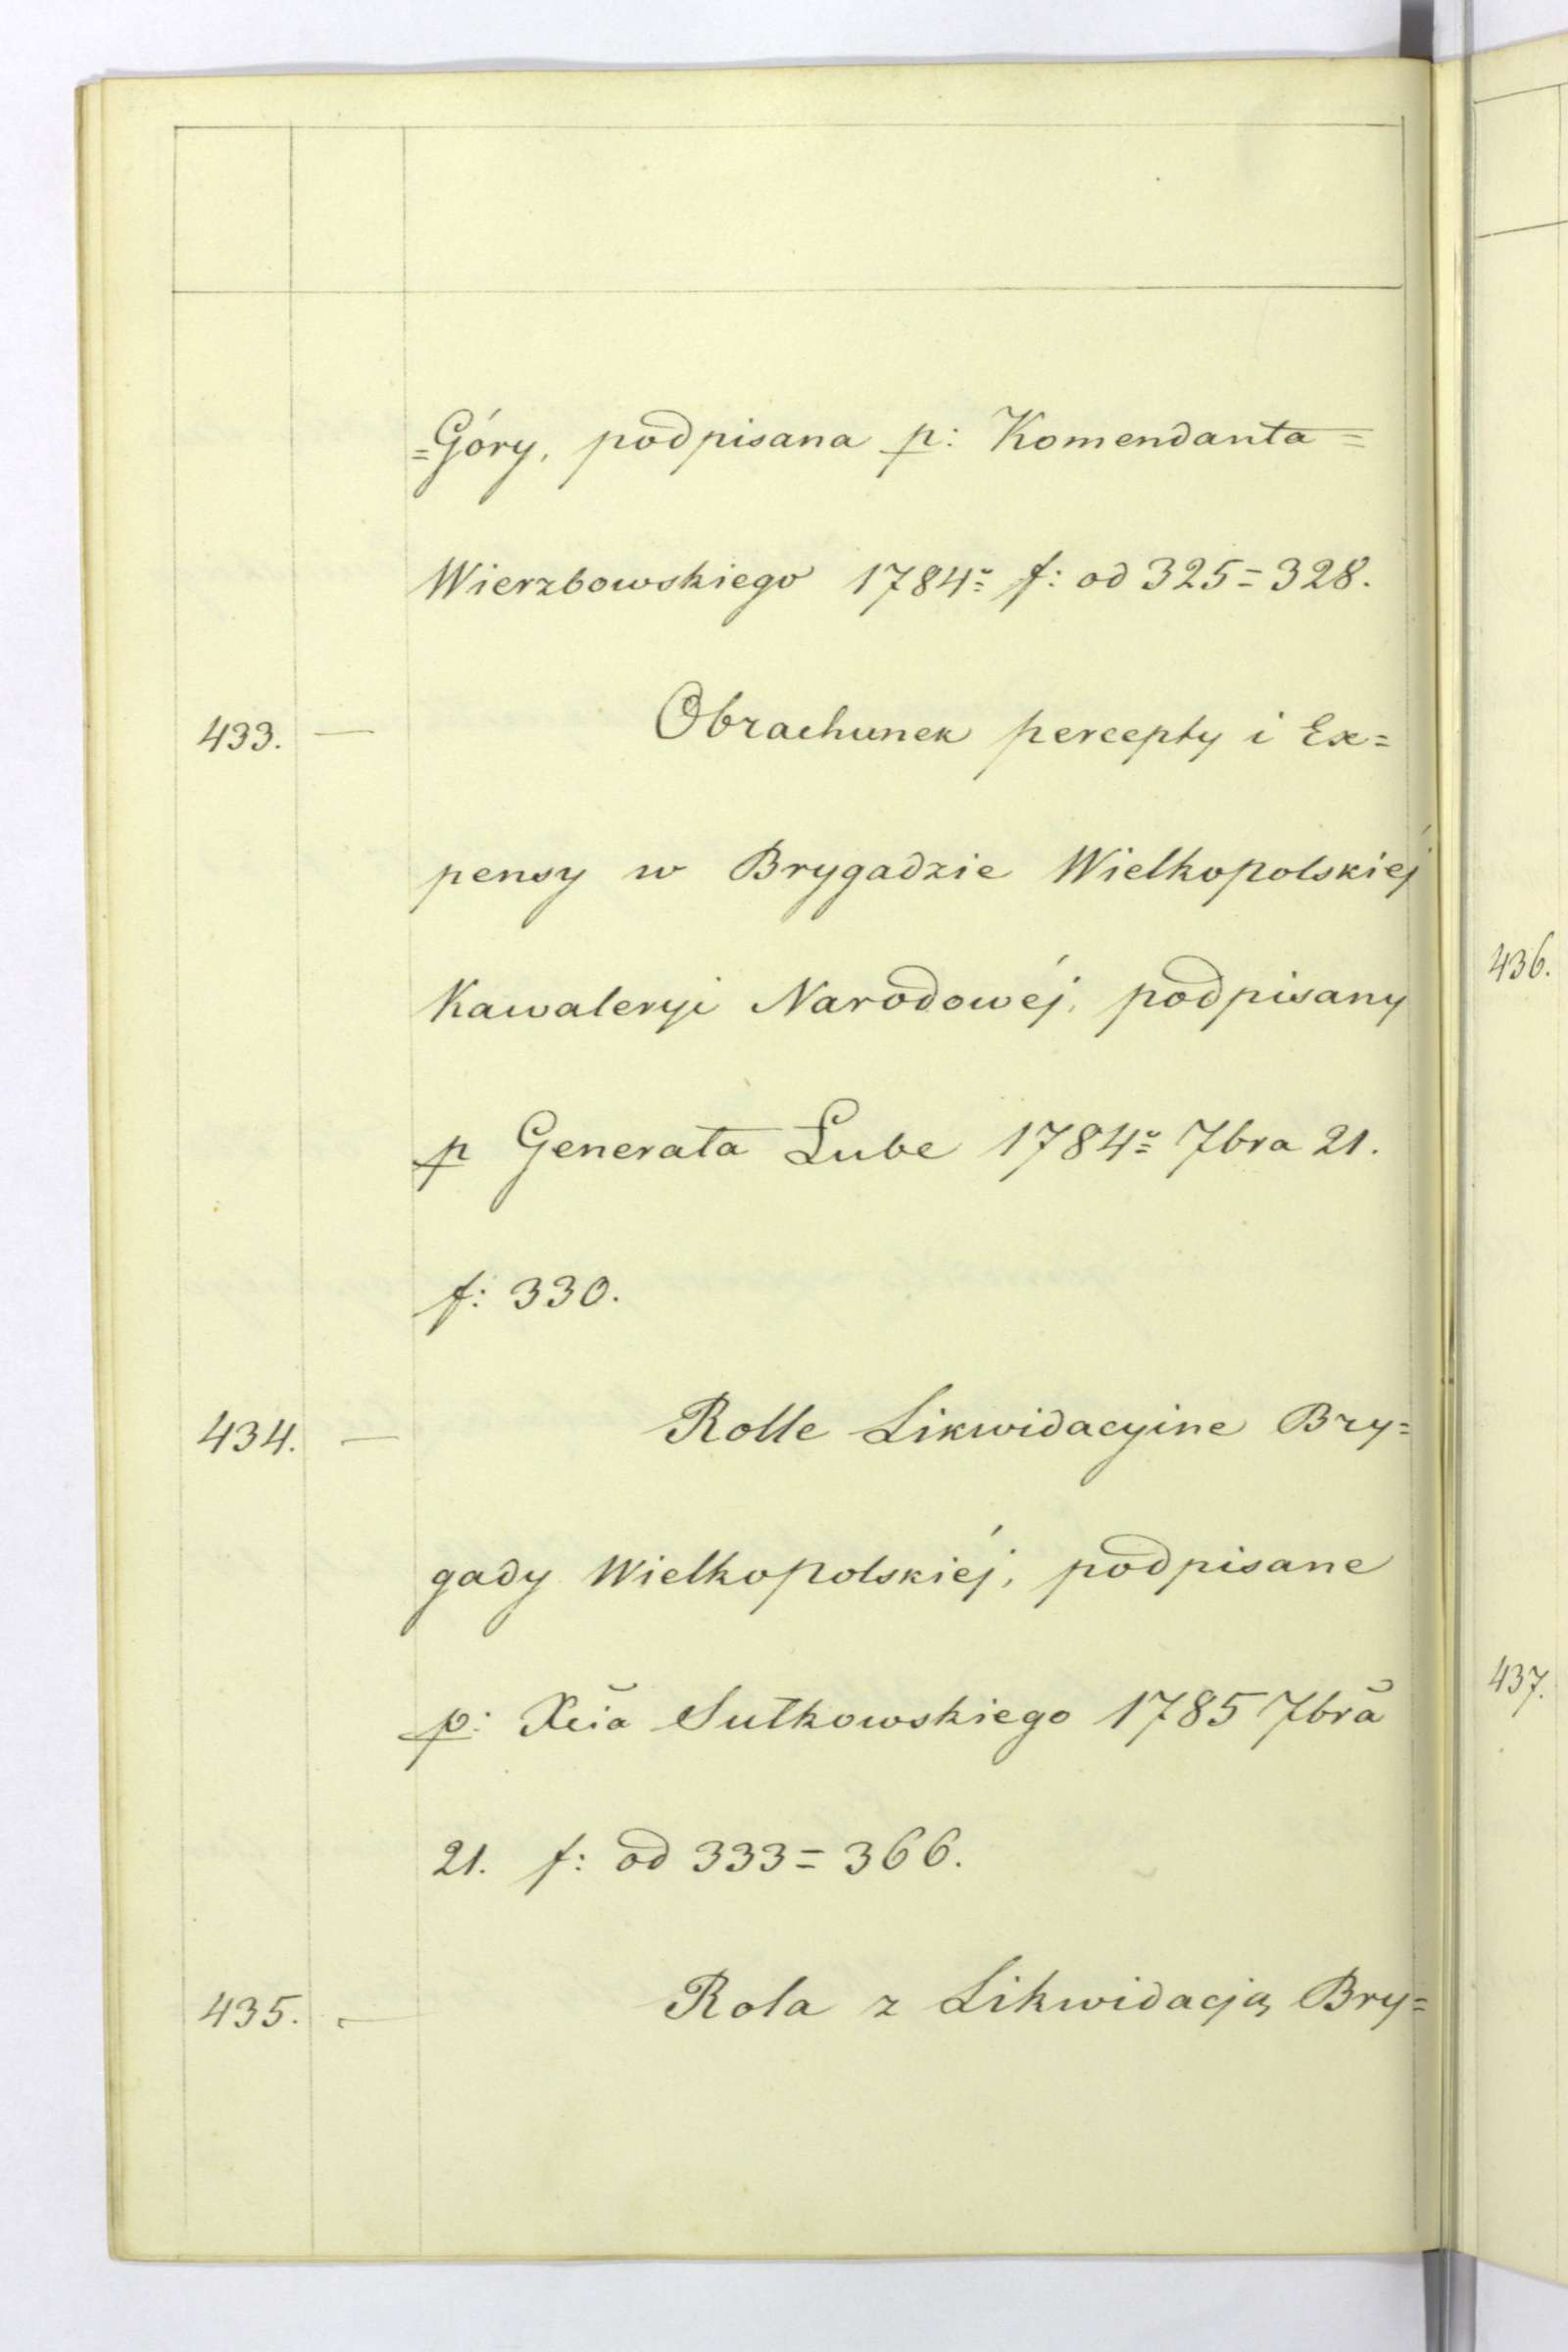 =Góry, podpisana p: Komendanta=
Wierzbowskiego 1784= f: od 325=328.
433. — Obrachunek percepty i Ex=
pensy w Brygadzie Wielkopolskiéj
Kawaleryi Narodowéj, podpisany
p Generała Lube 1784= 7bra 21.
f: 330.
434. — Rolle Likwidacyine Bry=
gady Wielkopolskiéj, podpisane
p: Xcia Sułkowskiego 1785 7bra
21. f: od 333=366.
435. — Rola z Likwidacją Bry=
436.
437.